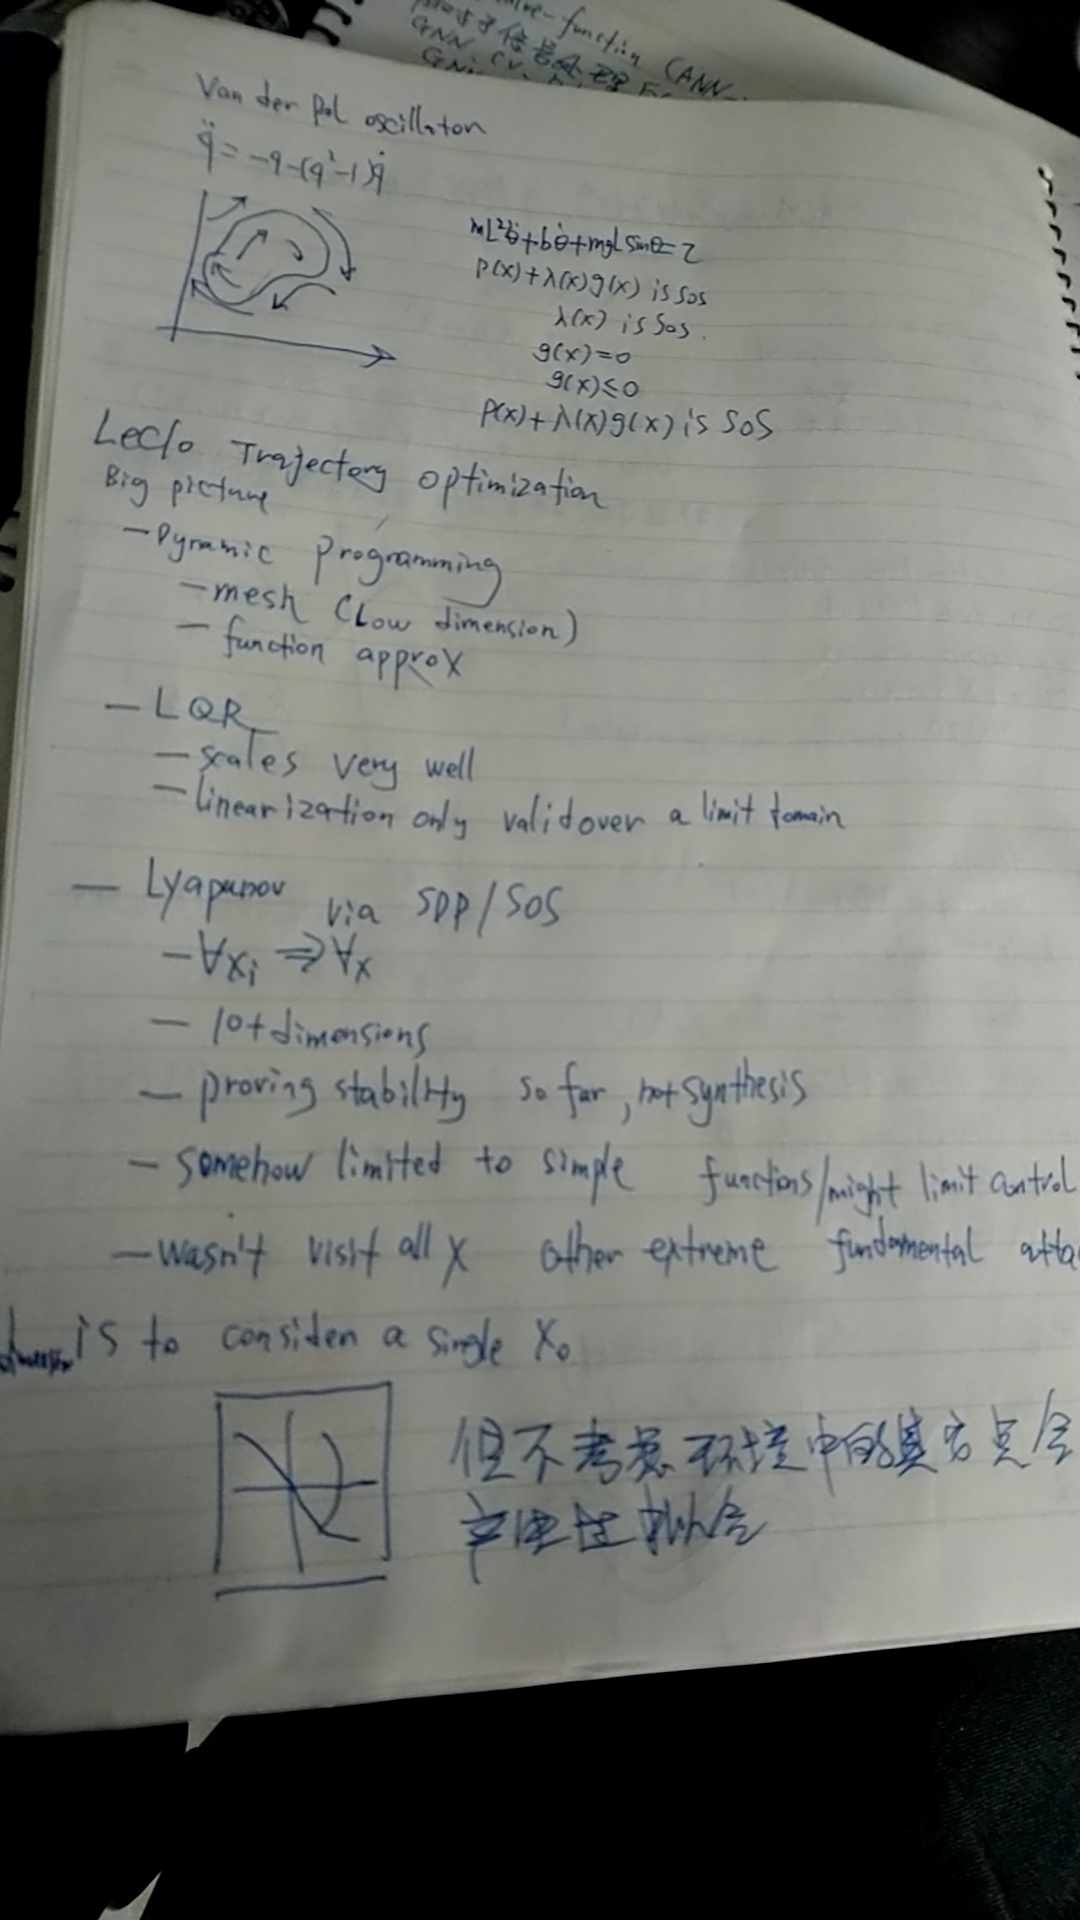 ive-function CANN
GNN, CV,
Van der Pol oscillaton
q̈ = -q-(q²-1)q̇
mL²θ̈+bθ̇+mgLsinθ=τ
p(x)+λ(x)g(x) is SOS
λ(x) is SOS.
g(x)=0
g(x)≤0
p(x)+λ(x)g(x) is SOS
Lec10 Trajectory optimization
Big picture
-Dynamic programming
-mesh (Low dimension)
- function approx
- LQR
- scales very well
- linearization only valid over a limit domain
- Lyapunov via SDP/SOS
- ∀xi ⇒ ∀x
- 10+ dimensions
- proving stability so far, not synthesis
- somehow limited to simple functions/might limit control
- wasn't visit all X other extreme fundamental atta
is to considen a single X₀
但不考虑环境中的真实点会
产生过拟合